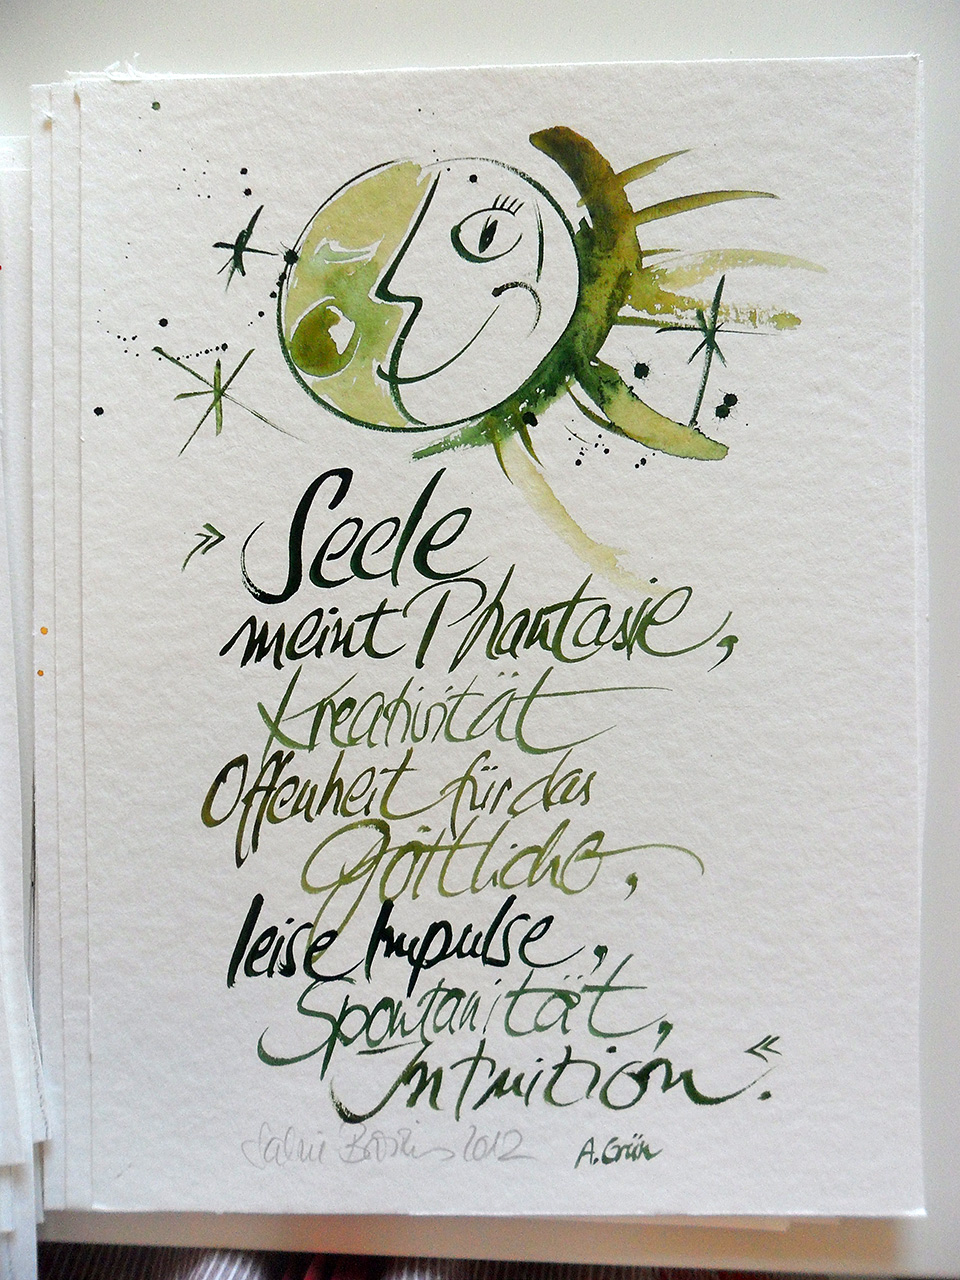 » Seele
meint Phantasie,
Kreativität
Offenheit für das
Göttliche,
leise Impulse,
Spontanität,
Intuition. «
2012
A. Grün